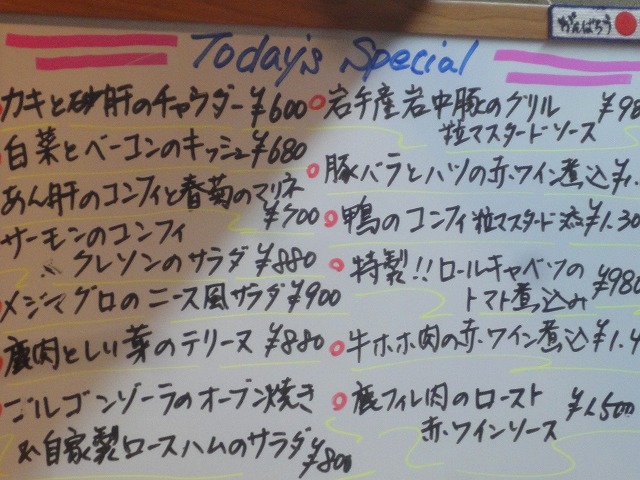 がんばろう
Today's Special
カキと砂肝のチャウダー ¥600
白菜とベーコンのキッシュ ¥680
あん肝のコンフィと春菊のマリネ
¥700
サーモンのコンフィ
クレソンのサラダ ¥880
メジマグロのニース風サラダ ¥900
鹿肉としい茸のテリーヌ ¥880
ゴルゴンゾーラのオーブン焼き
自家製ロースハムのサラダ ¥800
岩手産岩中豚のグリル ¥98
粒マスタードソース
豚バラとハツの赤ワイン煮込 ¥1.
鴨のコンフィ 粒マスタード添 ¥1.30
特製!!ロールキャベツの
トマト煮込み ¥980
牛ホホ肉の赤ワイン煮込 ¥1.4
鹿フィレ肉のロースト
赤ワインソース ¥1.500